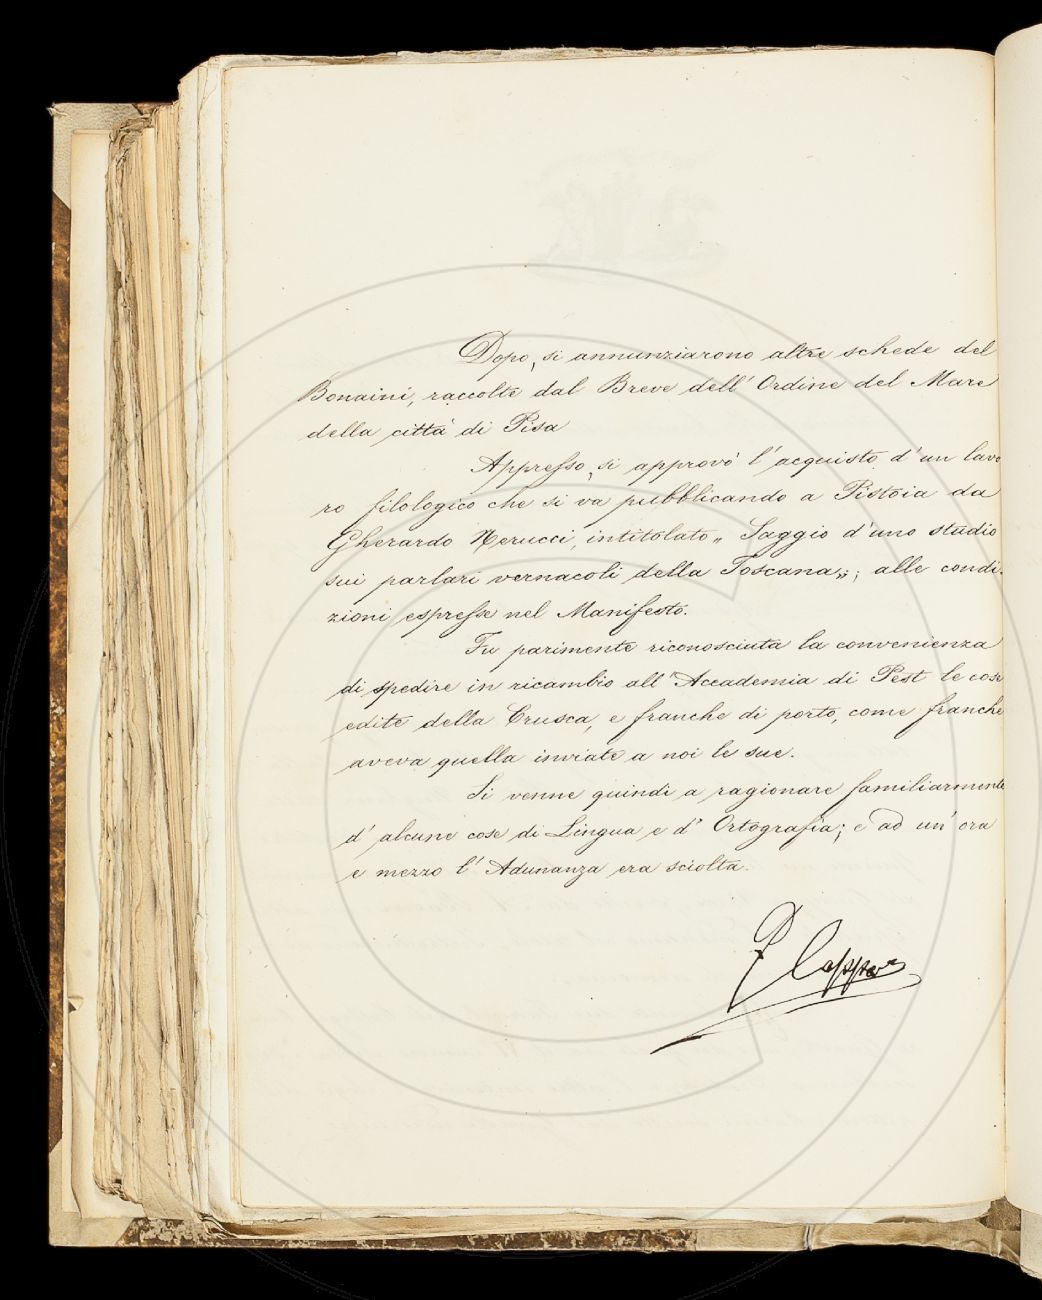 Dopo, si annunziarono altre schede del
Bonaini, raccolte dal Breve dell' Ordine del Mare
della città di Pisa
Appresso, si approvò l' acquisto d' un lavo
ro filologico che si va pubblicando a Pistoia da
Gherardo Nerucci, intitolato „ Saggio d' uno studio
sui parlari vernacoli della Toscana„; alle condi-
zioni espresse nel Manifesto.
Fu parimente riconosciuta la convenienza
di spedire in ricambio all' Accademia di Pest le cose
edite della Crusca, e franche di porto, come franche
aveva quella inviate a noi le sue.
Si venne quindi a ragionare familiarmente
d' alcune cose di Lingua e d' Ortografia; e ad un' ora
e mezzo l' Adunanza era sciolta.